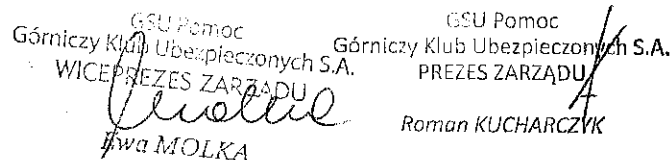 GSU Pomoc
Górniczy Klub Ubezpieczonych S.A.
WICEPREZES ZARZĄDU
Ewa MOLKA
GSU Pomoc
Górniczy Klub Ubezpieczonych S.A.
PREZES ZARZĄDU
Roman KUCHARCZYK